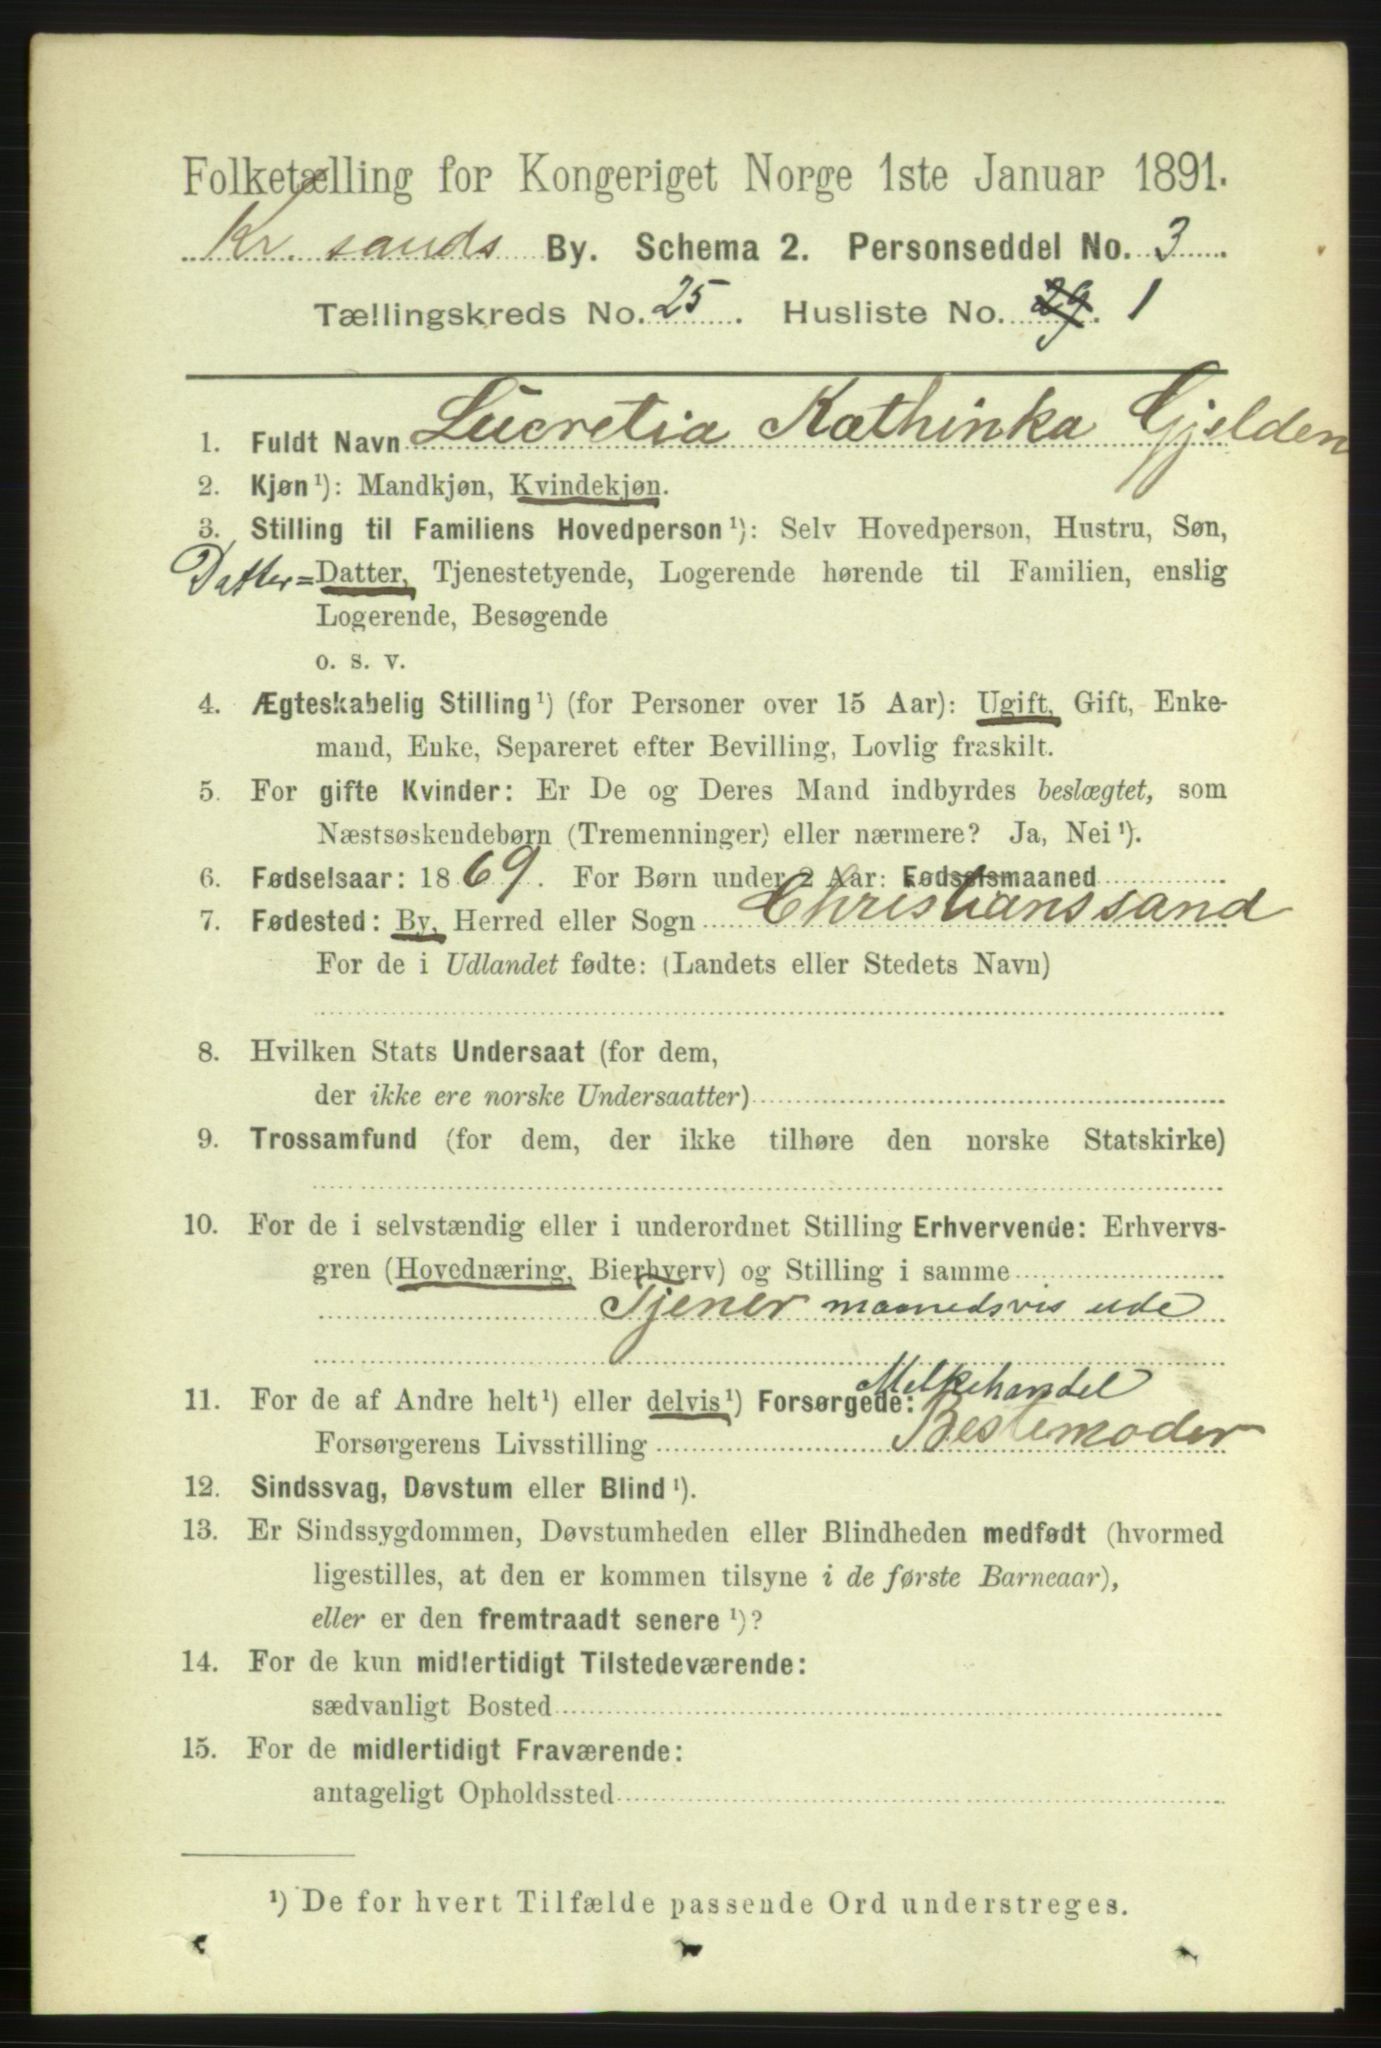 Folketælling for Kongeriget Norge 1ste Januar 1891.
Kr. sands By. Schema 2. Personseddel No. 3
Tællingskreds No. 25. Husliste No. 29. 1
1. Fuldt Navn Lucretia Kathinka Gjelden
2. Kjøn¹): Mandkjøn, Kvindekjøn.
3. Stilling til Familiens Hovedperson¹): Selv Hovedperson, Hustru, Søn,
Datter= Datter, Tjenestetyende, Logerende hørende til Familien, enslig
Logerende, Besøgende
o. s. v.
4. Ægteskabelig Stilling¹) (for Personer over 15 Aar): Ugift, Gift, Enke-
mand, Enke, Separeret efter Bevilling, Lovlig fraskilt.
5. For gifte Kvinder: Er De og Deres Mand indbyrdes beslægtet, som
Næstsøskendebørn (Tremenninger) eller nærmere? Ja, Nei¹).
6. Fødselsaar: 1869. For Børn under 2 Aar: Fødselsmaaned
7. Fødested: By, Herred eller Sogn Christianssand
For de i Udlandet fødte: (Landets eller Stedets Navn)
8. Hvilken Stats Undersaat (for dem,
der ikke ere norske Undersaatter)
9. Trossamfund (for dem, der ikke tilhøre den norske Statskirke)
10. For de i selvstændig eller i underordnet Stilling Erhvervende: Erhvervs-
gren (Hovednæring, Bierhverv) og Stilling i samme
Tjener maanedsvis ude
Melkehandel
11. For de af Andre helt¹) eller delvis¹) Forsørgede:
Forsørgerens Livsstilling Bestemoder
12. Sindssvag, Døvstum eller Blind¹).
13. Er Sindssygdommen, Døvstumheden eller Blindheden medfødt (hvormed
ligestilles, at den er kommen tilsyne i de første Barneaar),
eller er den fremtraadt senere¹)?
14. For de kun midlertidigt Tilstedeværende:
sædvanligt Bosted
15. For de midlertidigt Fraværende:
antageligt Opholdssted
¹) De for hvert Tilfælde passende Ord understreges.